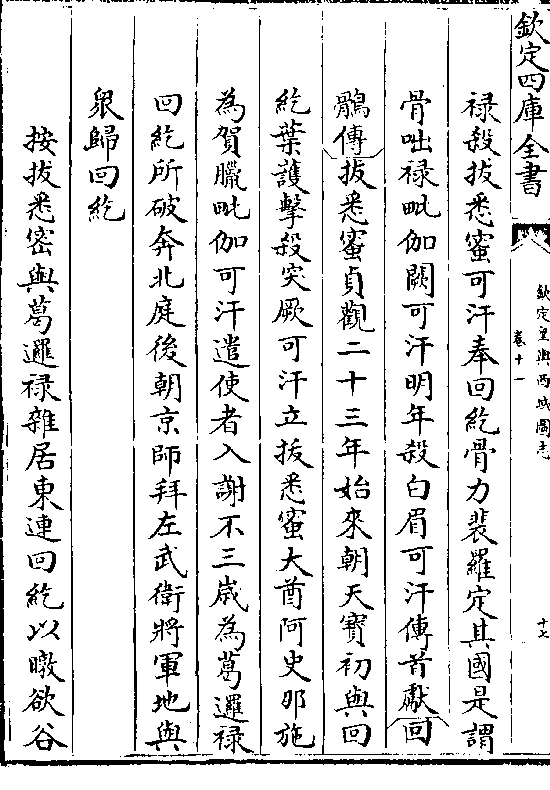 欽定四庫全書
欽定皇輿西域圖志
卷十一
十七
祿殺拔悉蜜可汗奉回紇骨力裴羅定其國是謂
骨咄祿毗伽闕可汗明年殺白眉可汗傳首獻回
鶻傳拔悉蜜貞觀二十三年始來朝天寶初與回
紇葉護擊殺突厥可汗立拔悉蜜大酋阿史那施
為賀臘毗伽可汗遣使者入謝不三歲為葛邏祿
回紇所破奔北庭後朝京師拜左武衛將軍地與
衆歸回紇
按拔悉密與葛邏祿雜居東連回紇以暾欲谷